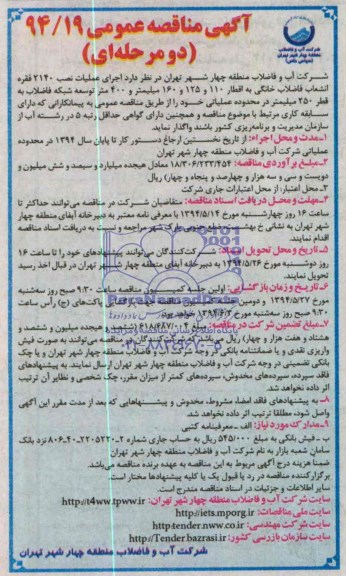 آگهی مناقصه عمومی ۹۴/۱۹
(دو مرحله‌ای)
شرکت آب و فاضلاب
منطقه چهار شهر تهران
(سهامی خاص)
شرکت آب و فاضلاب منطقه چهار شهر تهران در نظر دارد اجرای عملیات نصب ۲۱۴۰ فقره
انشعاب فاضلاب خانگی به اقطار ۱۱۰ و ۱۲۵ و ۱۶۰ میلیمتر و ۴۰۰ متر توسعه شبکه فاضلاب به
قطر ۲۵۰ میلیمتر در محدوده عملیاتی خود را از طریق مناقصه عمومی به پیمانکارانی که دارای
سابقه کاری مرتبط با موضوع مناقصه و همچنین دارای گواهی حداقل رتبه ۵ در رشته آب از
سازمان مدیریت و برنامه‌ریزی کشور باشند واگذار نماید.
۱ـ مدت و محل اجراء: از تاریخ نخستین ارجاع دستور کار تا پایان سال ۱۳۹۴ در محدوده
عملیاتی شرکت آب و فاضلاب منطقه چهار شهر تهران
۲ـ مبلغ برآوردی مناقصه: ۱۸/۳۰۶/۲۳۳/۴۵۴ معادل هیجده میلیارد و سیصد و شش میلیون و
دویست و سی و سه هزار و چهارصد و پنجاه و چهار) ریال
۳ـ محل اعتبار: از محل اعتبارات جاری شرکت
۴ـ مهلت و محل دریافت اسناد مناقصه: متقاضیان شرکت در مناقصه می‌توانند حداکثر تا
ساعت ۱۶ روز چهارشنبه مورخ ۱۳۹۴/۵/۱۴ با معرفی نامه معتبر به دبیرخانه آبفای منطقه چهار
شهر تهران به نشانی خ بهشتی مراجعه و نسبت به دریافت اسناد مناقصه
اقدام نمایند.
۵ـ تاریخ و محل تحویل اسناد: شرکت‌کنندگان می‌توانند پیشنهادهای خود را تا ساعت ۱۶
روز دوشنبه مورخ ۱۳۹۴/۵/۲۶ به دبیرخانه آبفای منطقه چهار شهر تهران در قبال اخذ رسید
تحویل نمایند.
۶ـ تاریخ و زمان بازگشایی: اولین جلسه کمیسیون مناقصه ساعت ۹:۳۰ صبح روز سه‌شنبه
مورخ ۱۳۹۴/۵/۲۷ و دومین جلسه پاکت‌های (ج) رأس ساعت
۹:۳۰ صبح روز سه‌شنبه مورخ ۱۳۹۴/۶/۳ خواهد بود.
۷ـ مبلغ تضمین شرکت در مناقصه: هیجده میلیون و ششصد و
هشتاد و هفت هزار و چهار) ریال می‌باشد که شرکت‌کنندگان در مناقصه می‌توانند به صورت فیش
واریزی نقدی و یا ضمانتنامه بانکی در وجه شرکت آب و فاضلاب منطقه چهار شهر تهران و یا چک
بانکی تضمینی در وجه شرکت آب و فاضلاب منطقه چهار شهر تهران ارسال نمایند. به پیشنهادهای
فاقد سپرده، سپرده‌های مخدوش، سپرده‌های کمتر از میزان مقرر، چک شخصی و نظایر آن ترتیب
اثر داده نخواهد شد.
۸ـ به پیشنهادهای فاقد امضا، مشروط، مخدوش و پیشنهادهایی که بعد از مدت مقرر این آگهی
واصل شود، مطلقا ترتیب اثر داده نخواهد شد.
۹ـ مدارک مورد نیاز: الف ـ معرفینامه کتبی
ب ـ فیش بانکی به مبلغ ۵۴۵/۰۰۰ ریال به حساب جاری شماره ۲ـ۵۲۲۰ـ۲۲۰ـ۴۰ـ۸۰۶ نزد بانک
سامان شعبه بازار به نام شرکت آب و فاضلاب منطقه چهار شهر تهران
ضمنا هزینه درج آگهی مربوط به این مناقصه به عهده برنده مناقصه می‌باشد.
برگزارکننده مناقصه در رد یا قبول یک یا کلیه پیشنهادها مختار است.
سایر اطلاعات و جزئیات در اسناد مناقصه مندرج است.
سایت شرکت آب و فاضلاب منطقه چهار شهر تهران: http://t4ww.tpww.ir
سایت ملی مناقصات: http://iets.mporg.ir
سایت شرکت مهندسی: http:tender.nww.co.ir
سایت سازمان بازرسی کشور: http://Tender.bazrasi.ir
شرکت آب و فاضلاب منطقه چهار شهر تهران